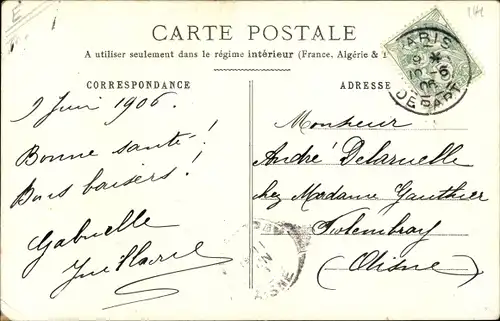 CARTE POSTALE
A utiliser seulement dans le régime intérieur (France, Algérie &
CORRESPONDANCE
ADRESSE
PARIS
DEPART
9 Juin 1906.
Bonne santé!
Bons baisers!
Gabrielle
Monsieur
André Delaruelle
chez Madame Gauthier
Folembray
(Aisne)
AISNE
141
E